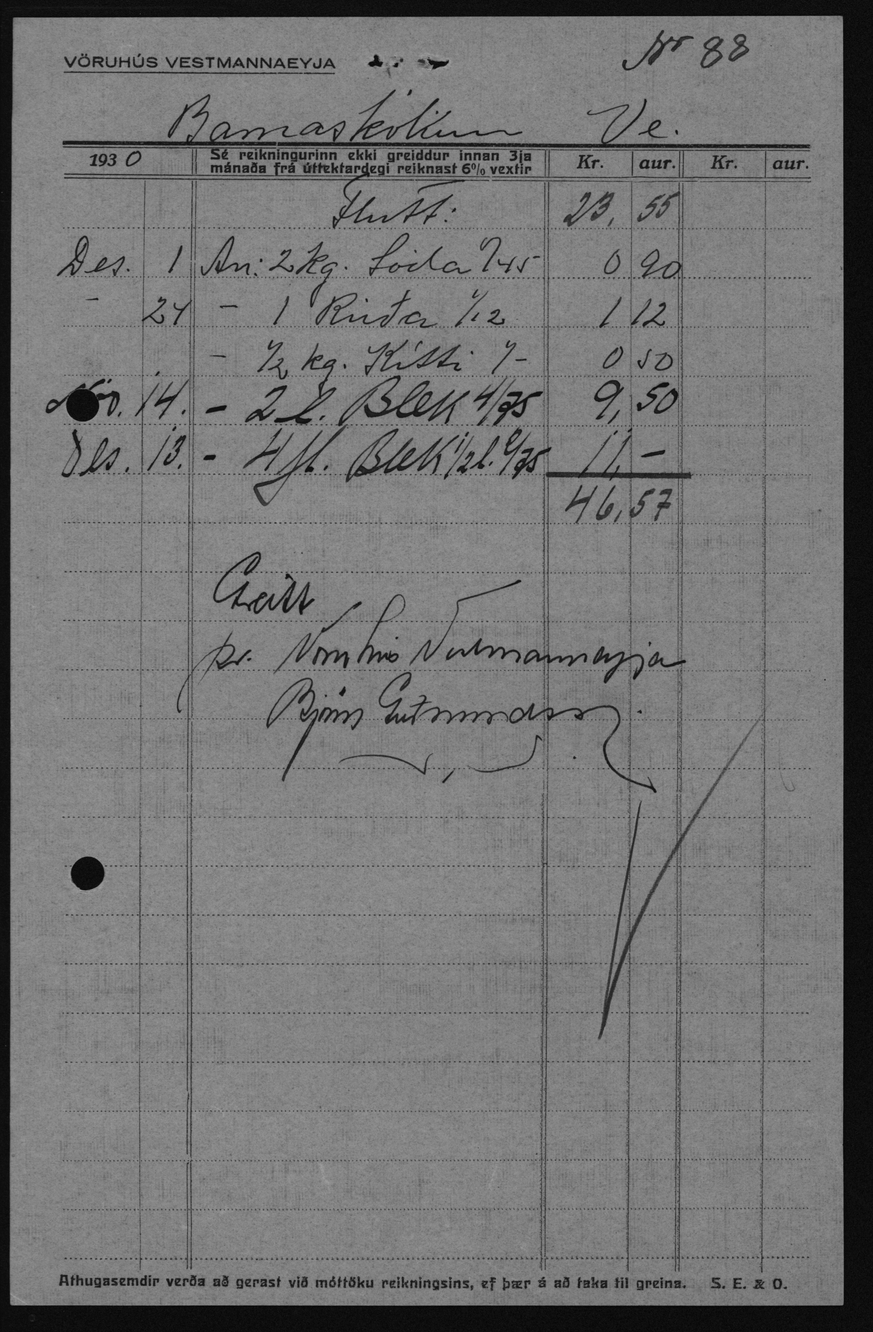 VÖRUHÚS VESTMANNAEYJA Nr 88
Barnaskólinn Ve.
1930 Sé reikningurinn ekki greiddur innan 3ja mánaða frá úttektardegi reiknast 6% vextir Kr. aur. Kr. aur.
Flutt: 23,55
Des. 1 An: 2 kg. Sóda 0/45 0 90
- 24 - 1 Rúða 1/12 1 12
- 1/2 kg. Kítti 1/- 0 50
Nóv. 14. - 2 l. Blek 4/75 9,50
Des. 13. - 4 fl. Blek 1/2 l. 2/75 11,-
46,57
Greitt
pr. Vöruhús Vestmannaeyja
Björn Guðmundsson
Athugasemdir verða að gerast við móttöku reikningsins, ef þær á að taka til greina. S. E. & O.